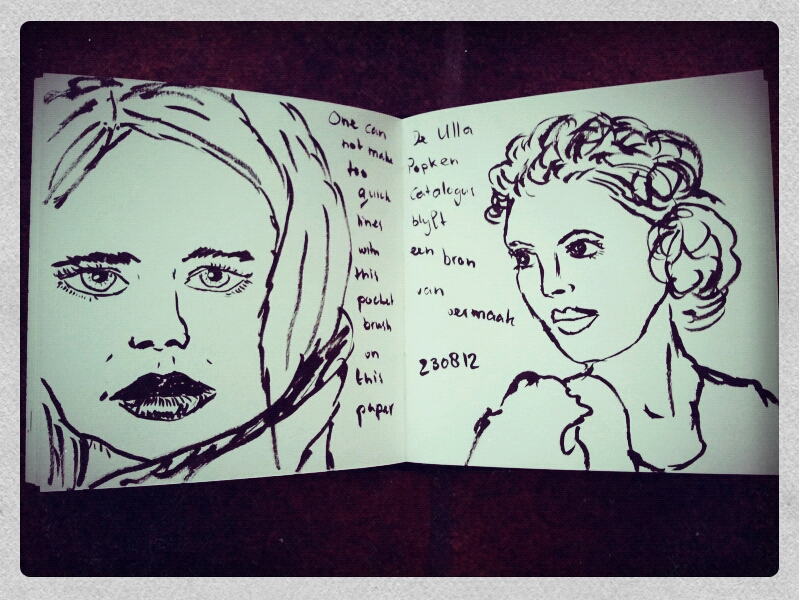 One can
not make
too
quick
lines
with
this
pocket
brush
on
this
paper
De Ulla
Popken
Catalogus
blyft
een bron
van
vermaak
230812